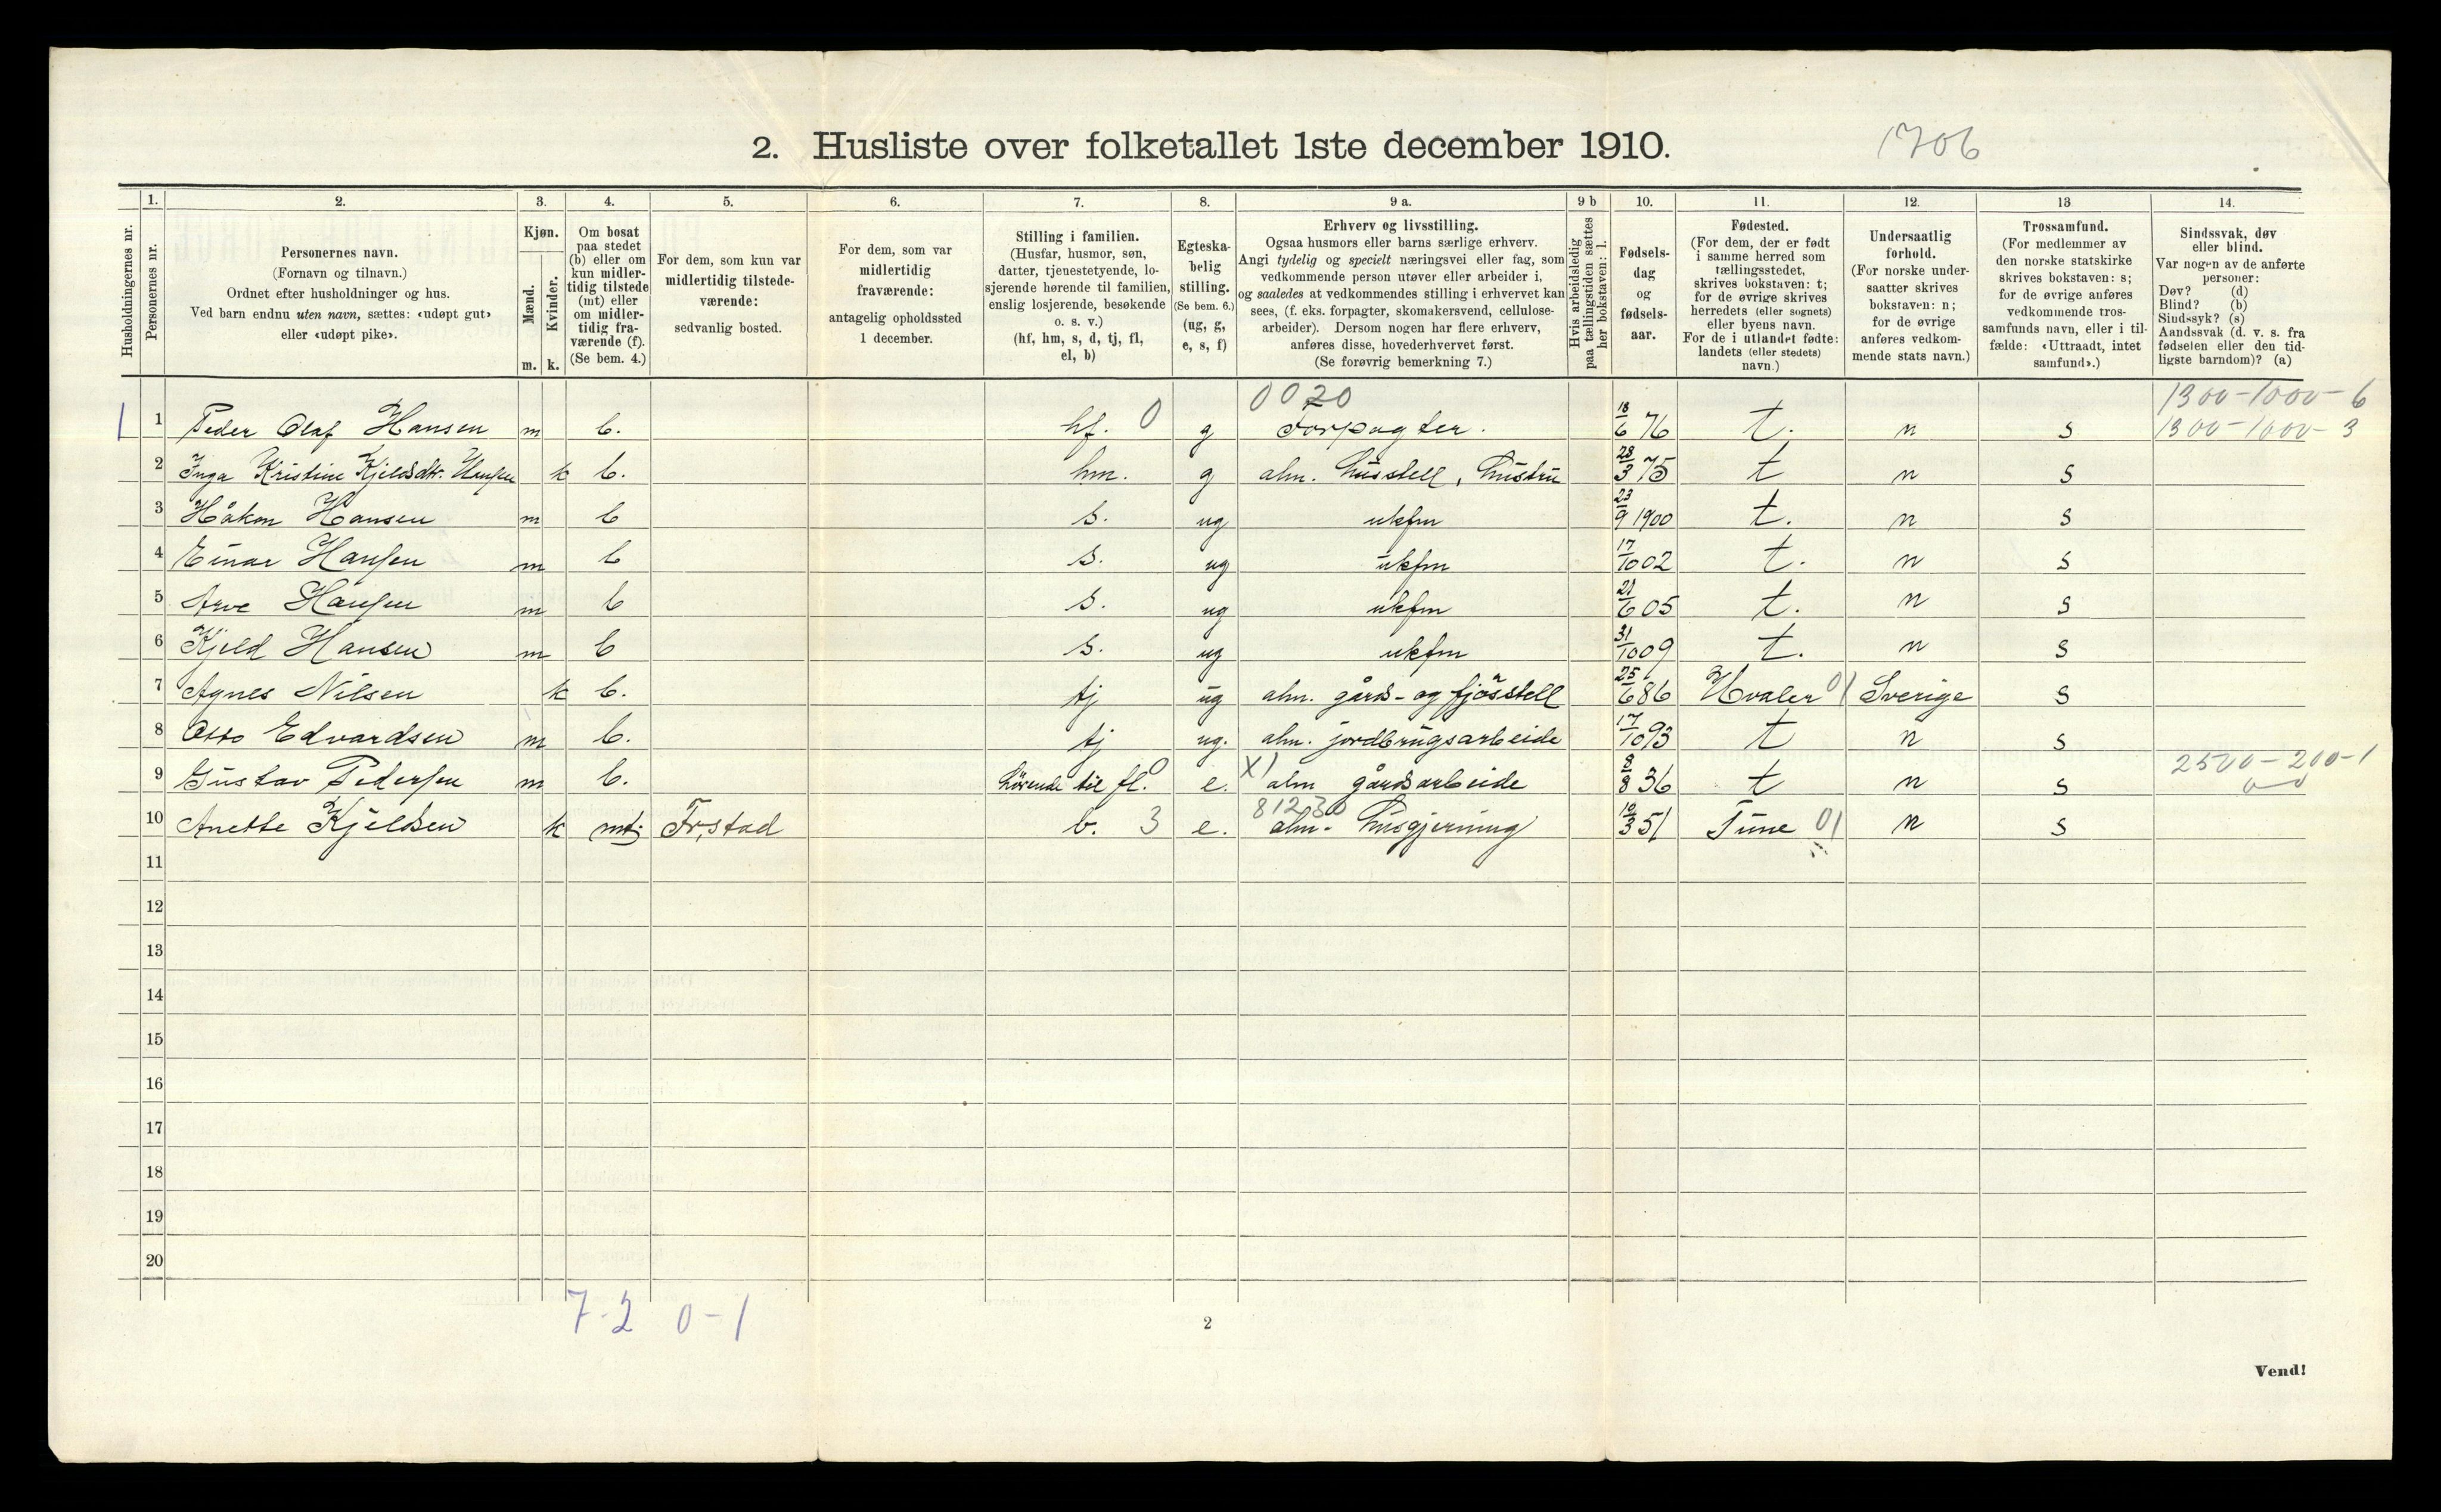 2. Husliste over folketallet 1ste december 1910.
1706
Husholdningernes nr.
1. Personernes nr.
2. Personernes navn. (Fornavn og tilnavn.) Ordnet efter husholdninger og hus. Ved barn endnu uten navn, sættes: «udøpt gut» eller «udøpt pike».
3. Kjøn. Mænd. m. Kvinder. k.
4. Om bosat paa stedet (b) eller om kun midlertidig tilstede (mt) eller om midlertidig fraværende (f). (Se bem. 4.)
5. For dem, som kun var midlertidig tilstedeværende: sedvanlig bosted.
6. For dem, som var midlertidig fraværende: antagelig opholdssted 1 december.
7. Stilling i familien. (Husfar, husmor, søn, datter, tjenestetyende, losjerende hørende til familien, enslig losjerende, besøkende o. s. v.) (hf, hm, s, d, tj, fl, el, b)
8. Egteskabelig stilling. (Se bem. 6.) (ug, g, e, s, f)
9 a. Erhverv og livsstilling. Ogsaa husmors eller barns særlige erhverv. Angi tydelig og specielt næringsvei eller fag, som vedkommende person utøver eller arbeider i, og saaledes at vedkommendes stilling i erhvervet kan sees, (f. eks. forpagter, skomakersvend, cellulosearbeider). Dersom nogen har flere erhverv, anføres disse, hovederhvervet først. (Se forøvrig bemerkning 7.)
9 b Hvis arbeidsledig paa tællingstiden sættes her bokstaven: l.
10. Fødselsdag og fødselsaar.
11. Fødested. (For dem, der er født i samme herred som tællingsstedet, skrives bokstaven: t; for de øvrige skrives herredets (eller sognets) eller byens navn. For de i utlandet fødte: landets (eller stedets) navn.)
12. Undersaatlig forhold. (For norske undersaatter skrives bokstaven: n; for de øvrige anføres vedkommende stats navn.)
13 Trossamfund. (For medlemmer av den norske statskirke skrives bokstaven: s; for de øvrige anføres vedkommende trossamfunds navn, eller i tilfælde: «Uttraadt, intet samfund».)
14. Sindssvak, døv eller blind. Var nogen av de anførte personer: Døv? (d) Blind? (b) Sindssyk? (s) Aandssvak (d. v. s. fra fødselen eller den tidligste barndom)? (a)
0020 1300-1000-6
1 1 Peder Olaf Hansen m b. hf. 0 g Forpagter. 18/6 76 t. n s 1300-1000-3
2 Inga Kristine Kjeldsdtr. Hansen k b. hm. g alm. husstell, hustru 28/3 75 t n s
3 Håkon Hansen m b s. ug ukfm 23/9 1900 t. n s
4 Einar Hansen m b s. ug ukfm 17/10 02 t. n s
5 Arve Hansen m b s. ug ukfm 21/6 05 t. n s
6 Kjeld Hansen m b s. ug ukfm 31/10 09 t. n s
7 Agnes Nilsen k b. tj ug alm. gårds- og fjøsstell 25/6 86 Hvaler 01 Sverige s
8 Otto Edvardsen m b. tj ug. alm. jordbrugsarbeide 17/10 93 t n s
9 Gustav Pedersen m b. hørende til fl. 0 e. X) alm gårdsarbeide 8/8 36 t n s 2500-200-1
0-0
812.30
10 Anette Kjeldsen k mt; Frstad b. 3 e. alm. husgjerning 10/3 51 Tune 01 n s
11
12
13
14
15
16
17
18
19
20
7-2 0-1
2
Vend!